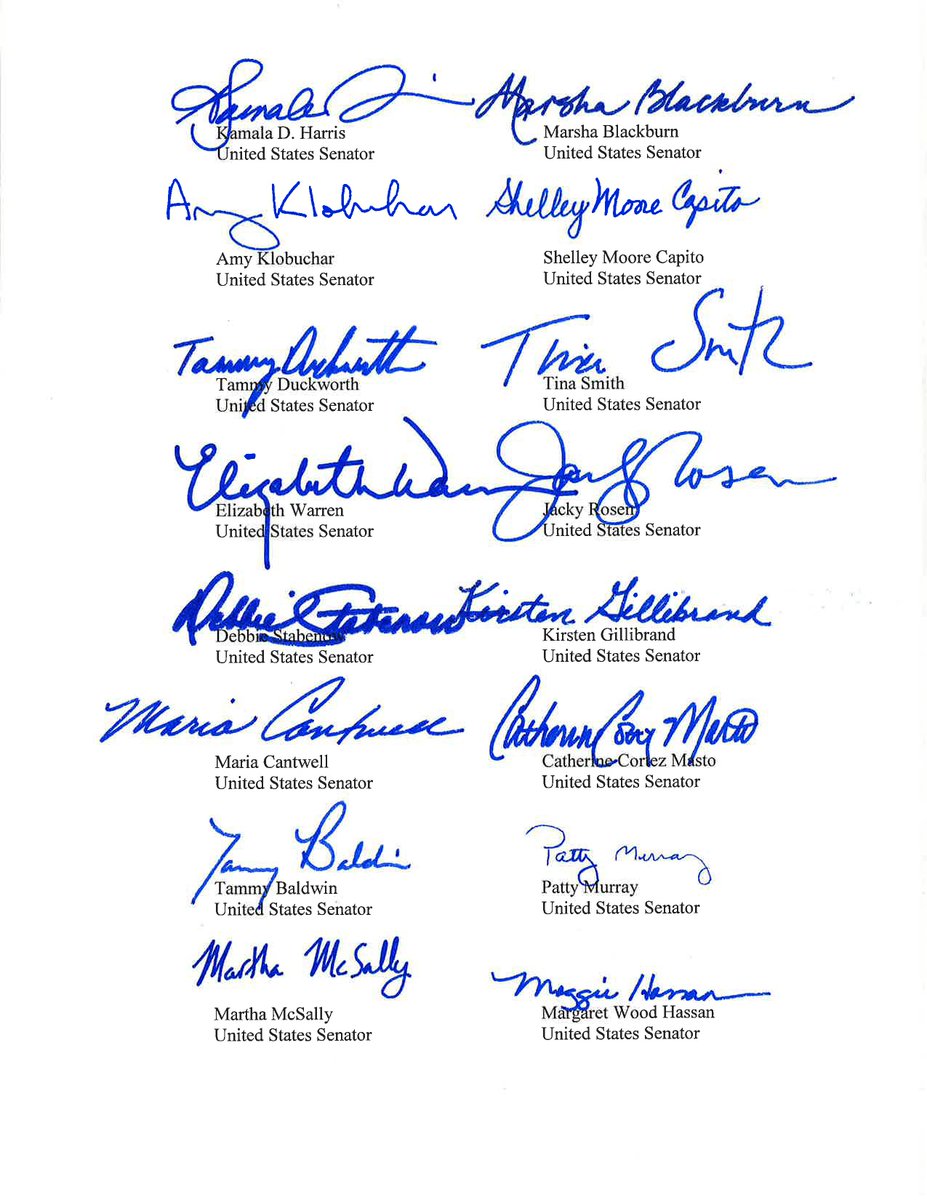 Kamala Marsha Blackburn
Kamala D. Harris Marsha Blackburn
United States Senator United States Senator
Amy Klobuchar Shelley Moore Capito
Amy Klobuchar Shelley Moore Capito
United States Senator United States Senator
Tammy Duckworth Tina Smith
Tammy Duckworth Tina Smith
United States Senator United States Senator
Elizabeth Warren Jacky Rosen
Elizabeth Warren Jacky Rosen
United States Senator United States Senator
Debbie Stabenow Kirsten Gillibrand
Debbie Stabenow Kirsten Gillibrand
United States Senator United States Senator
Maria Cantwell Catherine Cortez Masto
Maria Cantwell Catherine Cortez Masto
United States Senator United States Senator
Tammy Baldwin Patty Murray
Tammy Baldwin Patty Murray
United States Senator United States Senator
Martha McSally Maggie Hassan
Martha McSally Margaret Wood Hassan
United States Senator United States Senator